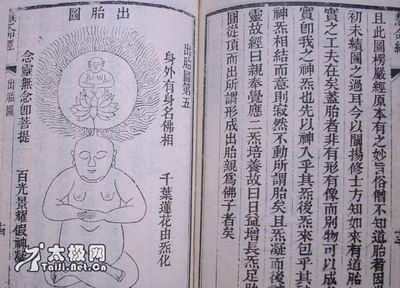 且此圖楞嚴經原本有之妙言俗僧不知道胎者因
初未續圖之過耳今以闡揚修士方知如來有道胎
實之工夫在矣蓋胎者非有形有像而別物可以成
實卽我之神炁也先以神入乎其炁後炁來包乎其
神炁相結而意則寂然不動所謂胎矣且炁凝而後
靈故經曰親奉覺應二炁培養故曰日益增長炁足胎
圓從頂而出所謂形成出胎親為佛子者矣
出胎圖
出胎圖第五
身外有身名佛相
千葉蓮花由炁化
念靈無念卽菩提
百光景耀假神凝
慧命經
出胎圖
太极网
Taiji.net.cn